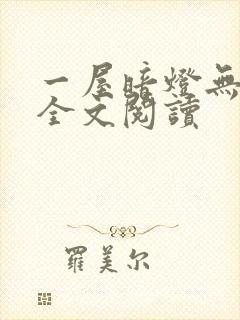 一屋暗燈無
全文閱讀
羅美尔